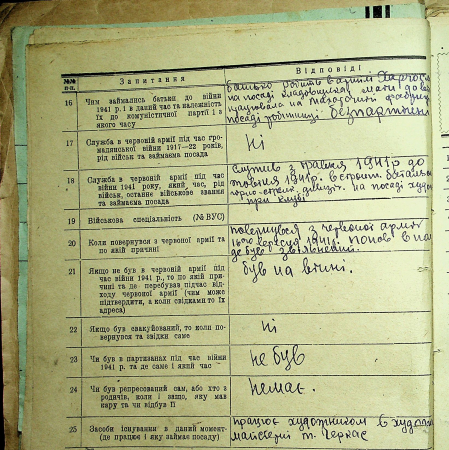 №№ п-п.
Запитання
Відповіді
16
Чим займались батьки до війни
1941 р. і в даний час та належність
їх до комуністичної партії і з
якого часу
батько робить в артілі
на посаді кладовщика, мати до
працювала на тютюновій фабриці
посаді робітниці безпартійні
17
Служба в червоній армії під час гро-
мадянської війни 1917—22 років,
рід військ та займаєма посада
Ні
18
Служба в червоній армії під час
війни 1941 року, який час, рід
військ, останнє військове звання
та займаєма посада
Служив з травня 1941р до
1941р. в строит. батальоні
на посаді худож
при клубі
19
Військова спеціальність (№ ВУС)
20
Коли повернувся з червоної армії та
по якій причині
повернувся з червоної армії
вересня 1941р. попав в
де був звільнений.
21
Якщо не був в червоній армії під
час війни 1941 р., то по якій при-
чині та де перебував підчас від-
ходу червоної армії (чим може
підтвердити, а коли свідками то їх
адреса)
був на війні.
22
Якщо був евакуйований, то коли по-
вернувся та звідки саме
ні
23
Чи був в партизанах під час війни
1941 р. та де саме і який час
не був
24
Чи був репресований сам, або хто з
родичів, коли і защо, яку мав
кару та чи відбув її
немає.
25
Засоби існування в даний момент-
(де працює і яку займає посаду)
працює художником в худож
майстерні м. Черкас